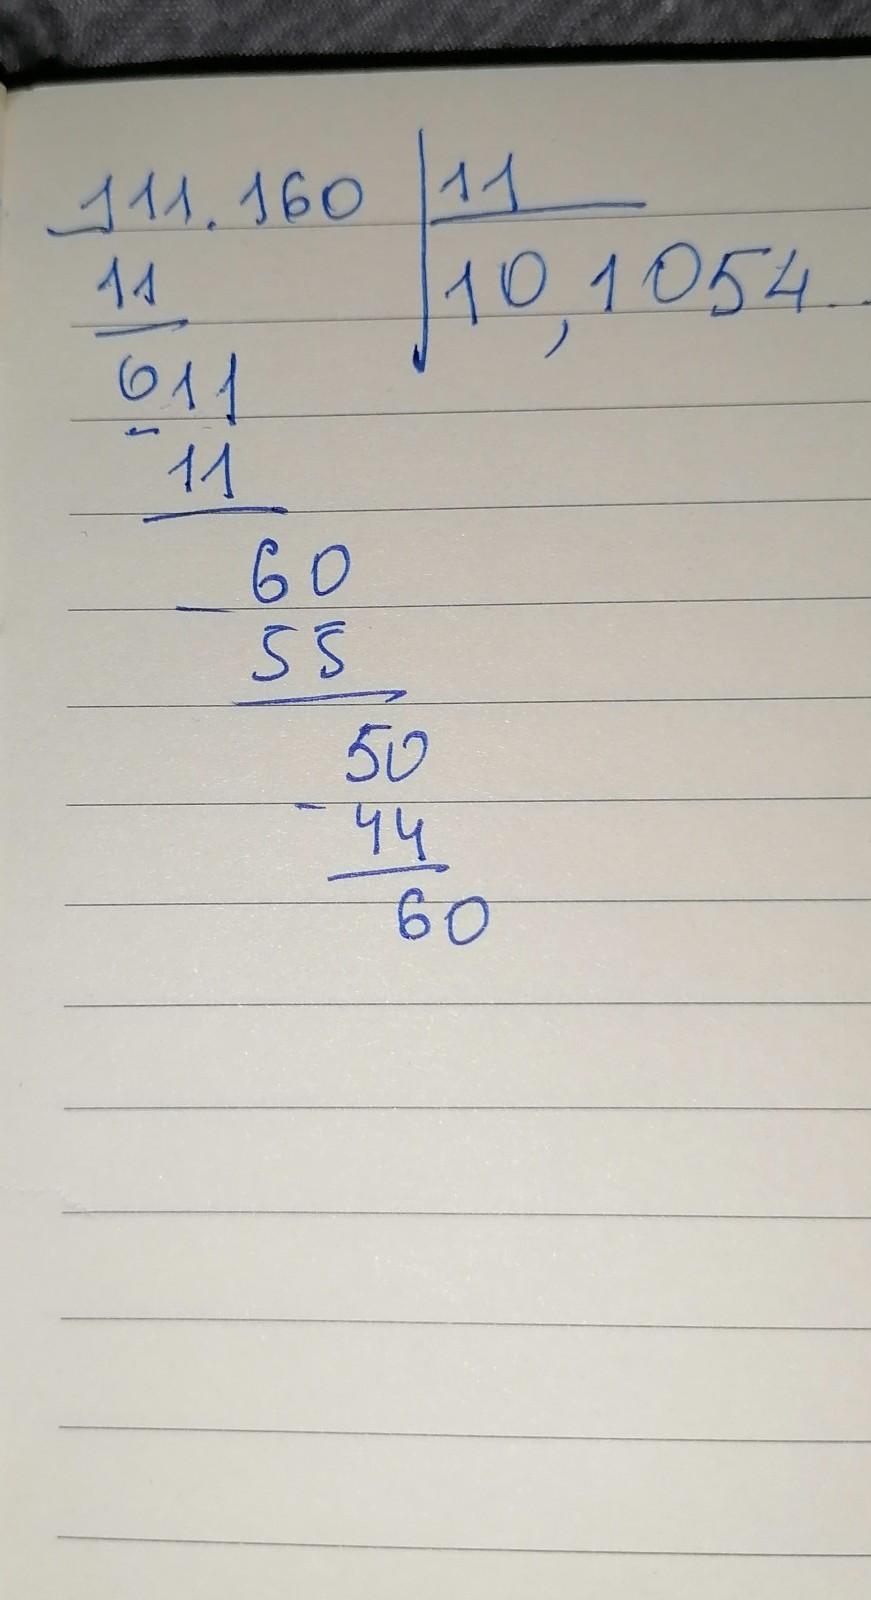 111.160 | 11
11 10,1054...
011
11
60
55
50
- 44
60